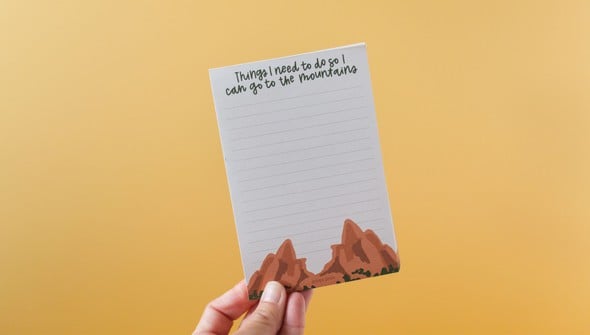 Things I need to do so I
can go to the mountains